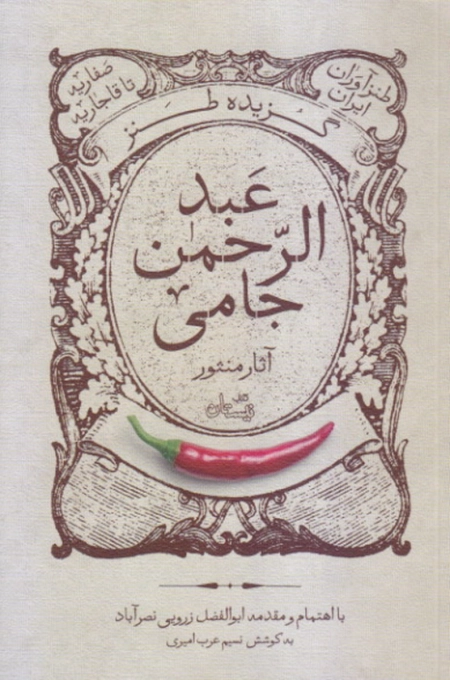 طنزآوران
ایران
صفاریه
تا قاجاریه
گزیده طنز
عَبد
الرّحمٰن
جامی
آثار منثور
کتاب نیستان
با اهتمام و مقدمه ابوالفضل زرویی نصرآباد
به کوشش نسیم عرب امیری